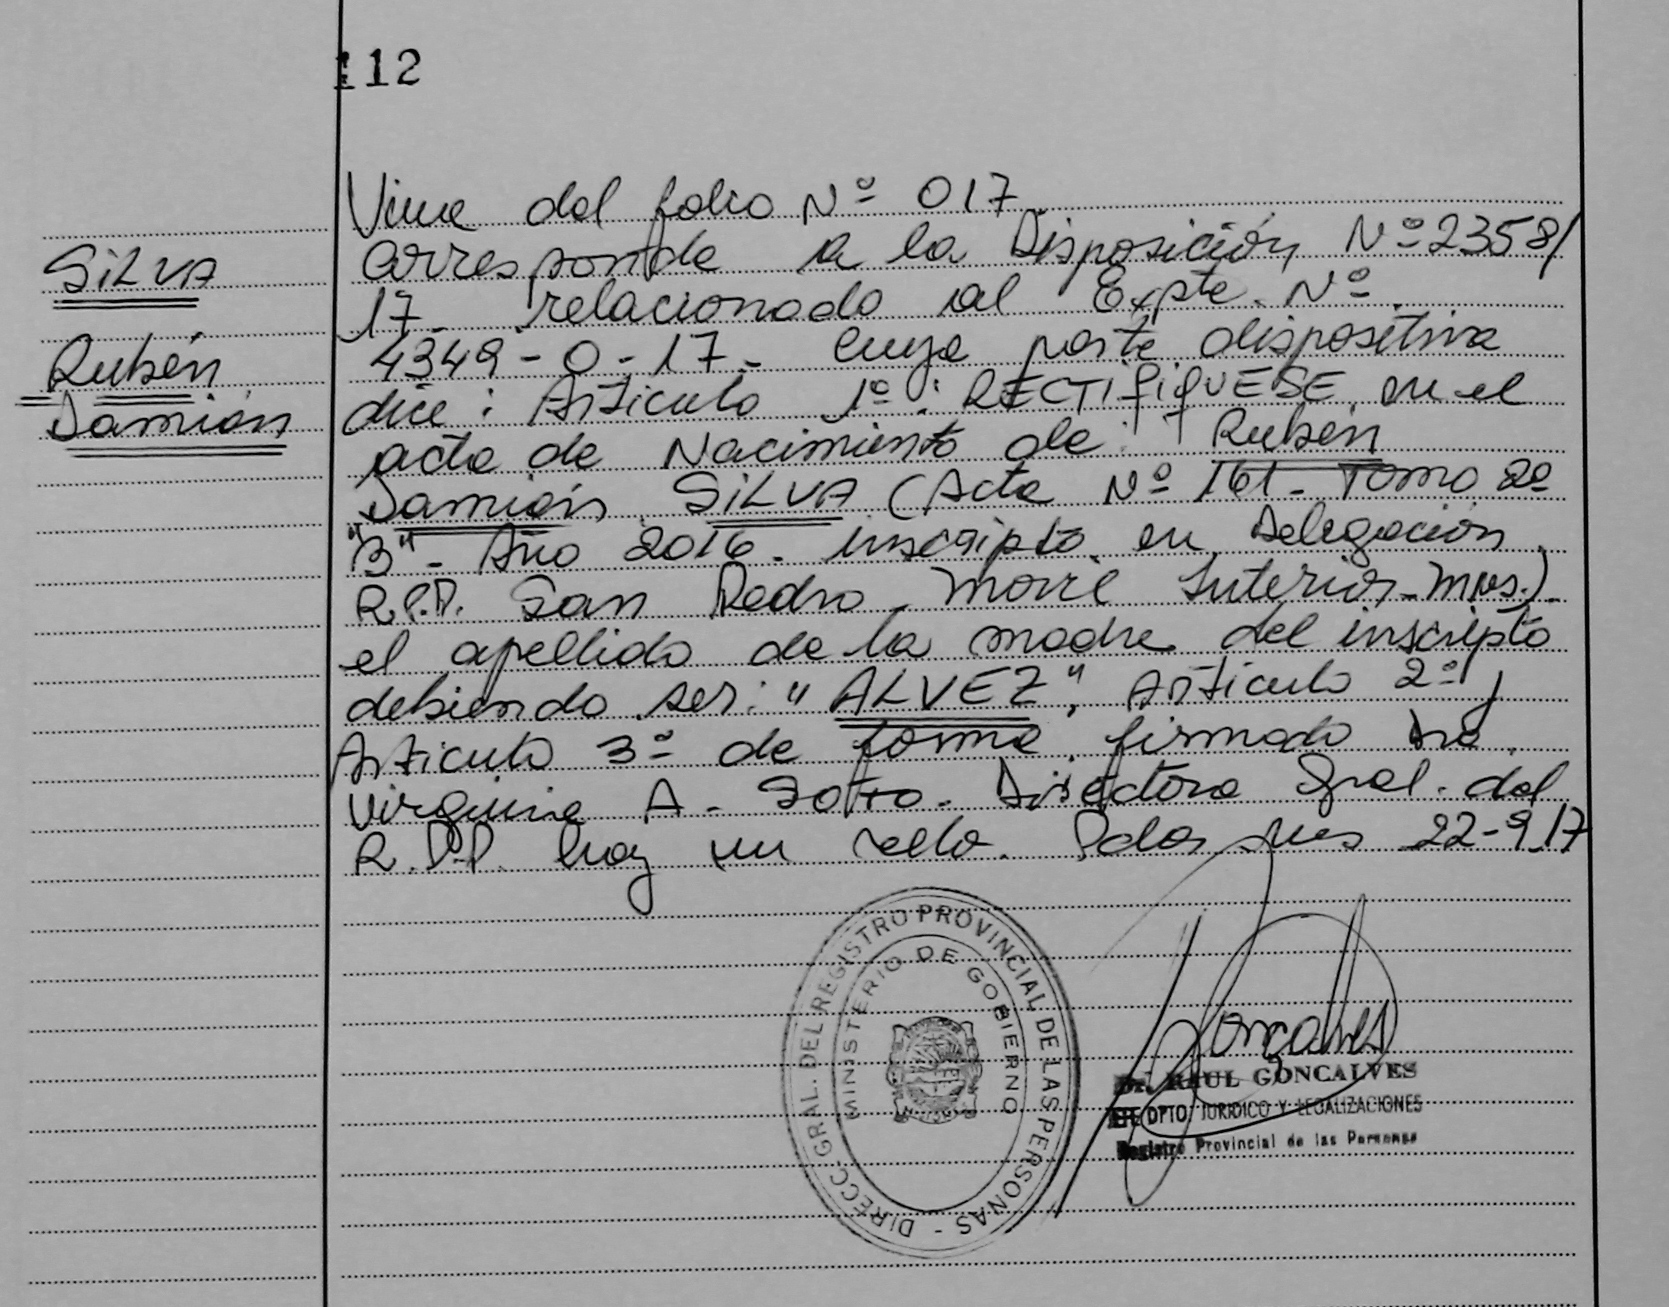 112
Viene del folio Nº 017
SILVA
Corresponde a la Disposición Nº 2358/
17. relacionado al Expte. Nº
Rubén
Damián
4349-0-17- cuya parte dispositiva
dice: Artículo 1º: RECTIFIQUESE, en el
acta de Nacimiento de: Rubén
Damián SILVA (Acta Nº 161- Tomo 2º
"B"- Año 2016. inscripto en Delegación
R.P.P. San Pedro Movil Interior-Mnes.)-
el apellido de la madre del inscripto
debiendo ser: "ALVEZ", Artículo 2º y
Artículo 3º de forma, firmado Dra.
Virginia A. Directora Gral. del
R.P.P. hay un sello. Pdas Mnes 22-9-17
DIRECC. GRAL. DEL REGISTRO PROVINCIAL DE LAS PERSONAS -
MINISTERIO DE GOBIERNO
Goncalves
Dr. RAUL GONCALVES
DPTO. JURIDICO Y LEGALIZACIONES
Registro Provincial de las Personas